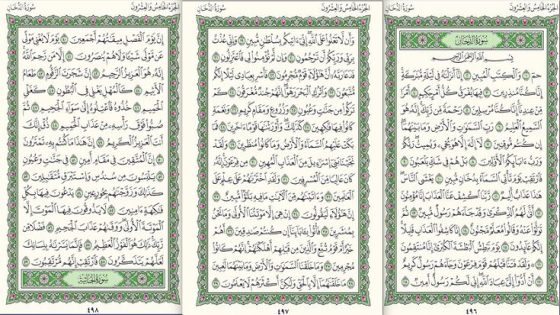 الجزء الخامس والعشرون
سورة الدخان
سورة الدخان
بسم الله الرحمن الرحيم
حم ١ والكتاب المبين ٢ إنا أنزلناه في ليلة مباركة
إنا كنا منذرين ٣ فيها يفرق كل أمر حكيم ٤ أمرا
من عندنا إنا كنا مرسلين ٥ رحمة من ربك إنه هو
السميع العليم ٦ رب السماوات والأرض وما بينهما
إن كنتم موقنين ٧ لا إله إلا هو يحيي ويميت ربكم
ورب آبائكم الأولين ٨ بل هم في شك يلعبون ٩
فارتقب يوم تأتي السماء بدخان مبين ١٠ يغشى الناس
هذا عذاب أليم ١١ ربنا اكشف عنا العذاب إنا مؤمنون
١٢ أنى لهم الذكرى وقد جاءهم رسول مبين ١٣ ثم
تولوا عنه وقالوا معلم مجنون ١٤ إنا كاشفو العذاب قليلا
إنكم عائدون ١٥ يوم نبطش البطشة الكبرى إنا منتقمون
١٦ ولقد فتنا قبلهم قوم فرعون وجاءهم رسول كريم
١٧ أن أدوا إلي عباد الله إني لكم رسول أمين ١٨
٤٩٦
الجزء الخامس والعشرون
سورة الدخان
وأن لا تعلوا على الله إني آتيكم بسلطان مبين ١٩ وإني عذت
بربي وربكم أن ترجمون ٢٠ وإن لم تؤمنوا لي فاعتزلون ٢١
فدعا ربه أن هؤلاء قوم مجرمون ٢٢ فأسر بعبادي ليلا إنكم
متبعون ٢٣ واترك البحر رهوا إنهم جند مغرقون ٢٤ كم
تركوا من جنات وعيون ٢٥ وزروع ومقام كريم ٢٦ ونعمة
كانوا فيها فاكهين ٢٧ كذلك وأورثناها قوما آخرين ٢٨ فما
بكت عليهم السماء والأرض وما كانوا منظرين ٢٩ ولقد
نجينا بني إسرائيل من العذاب المهين ٣٠ من فرعون إنه
كان عاليا من المسرفين ٣١ ولقد اخترناهم على علم على
العالمين ٣٢ وآتيناهم من الآيات ما فيه بلاء مبين ٣٣
إن هؤلاء ليقولون ٣٤ إن هي إلا موتتنا الأولى وما نحن
بمنشرين ٣٥ فأتوا بآبائنا إن كنتم صادقين ٣٦ أهم
خير أم قوم تبع والذين من قبلهم أهلكناهم إنهم كانوا
مجرمين ٣٧ وما خلقنا السماوات والأرض وما بينهما لاعبين
٣٨ ما خلقناهما إلا بالحق ولكن أكثرهم لا يعلمون ٣٩
٤٩٧
الجزء الخامس والعشرون
سورة الدخان
إن يوم الفصل ميقاتهم أجمعين ٤٠ يوم لا يغني مولى
عن مولى شيئا ولا هم ينصرون ٤١ إلا من رحم الله
إنه هو العزيز الرحيم ٤٢ إن شجرت الزقوم ٤٣ طعام
الأثيم ٤٤ كالمهل يغلي في البطون ٤٥ كغلي
الحميم ٤٦ خذوه فاعتلوه إلى سواء الجحيم ٤٧ ثم
صبوا فوق رأسه من عذاب الحميم ٤٨ ذق إنك
أنت العزيز الكريم ٤٩ إن هذا ما كنتم به تمترون
٥٠ إن المتقين في مقام أمين ٥١ في جنات وعيون
٥٢ يلبسون من سندس وإستبرق متقابلين ٥٣
كذلك وزوجناهم بحور عين ٥٤ يدعون فيها بكل
فاكهة آمنين ٥٥ لا يذوقون فيها الموت إلا
الموتة الأولى ووقاهم عذاب الجحيم ٥٦ فضلا من
ربك ذلك هو الفوز العظيم ٥٧ فإنما يسرناه بلسانك
لعلهم يتذكرون ٥٨ فارتقب إنهم مرتقبون ٥٩
سورة الجاثية
٤٩٨